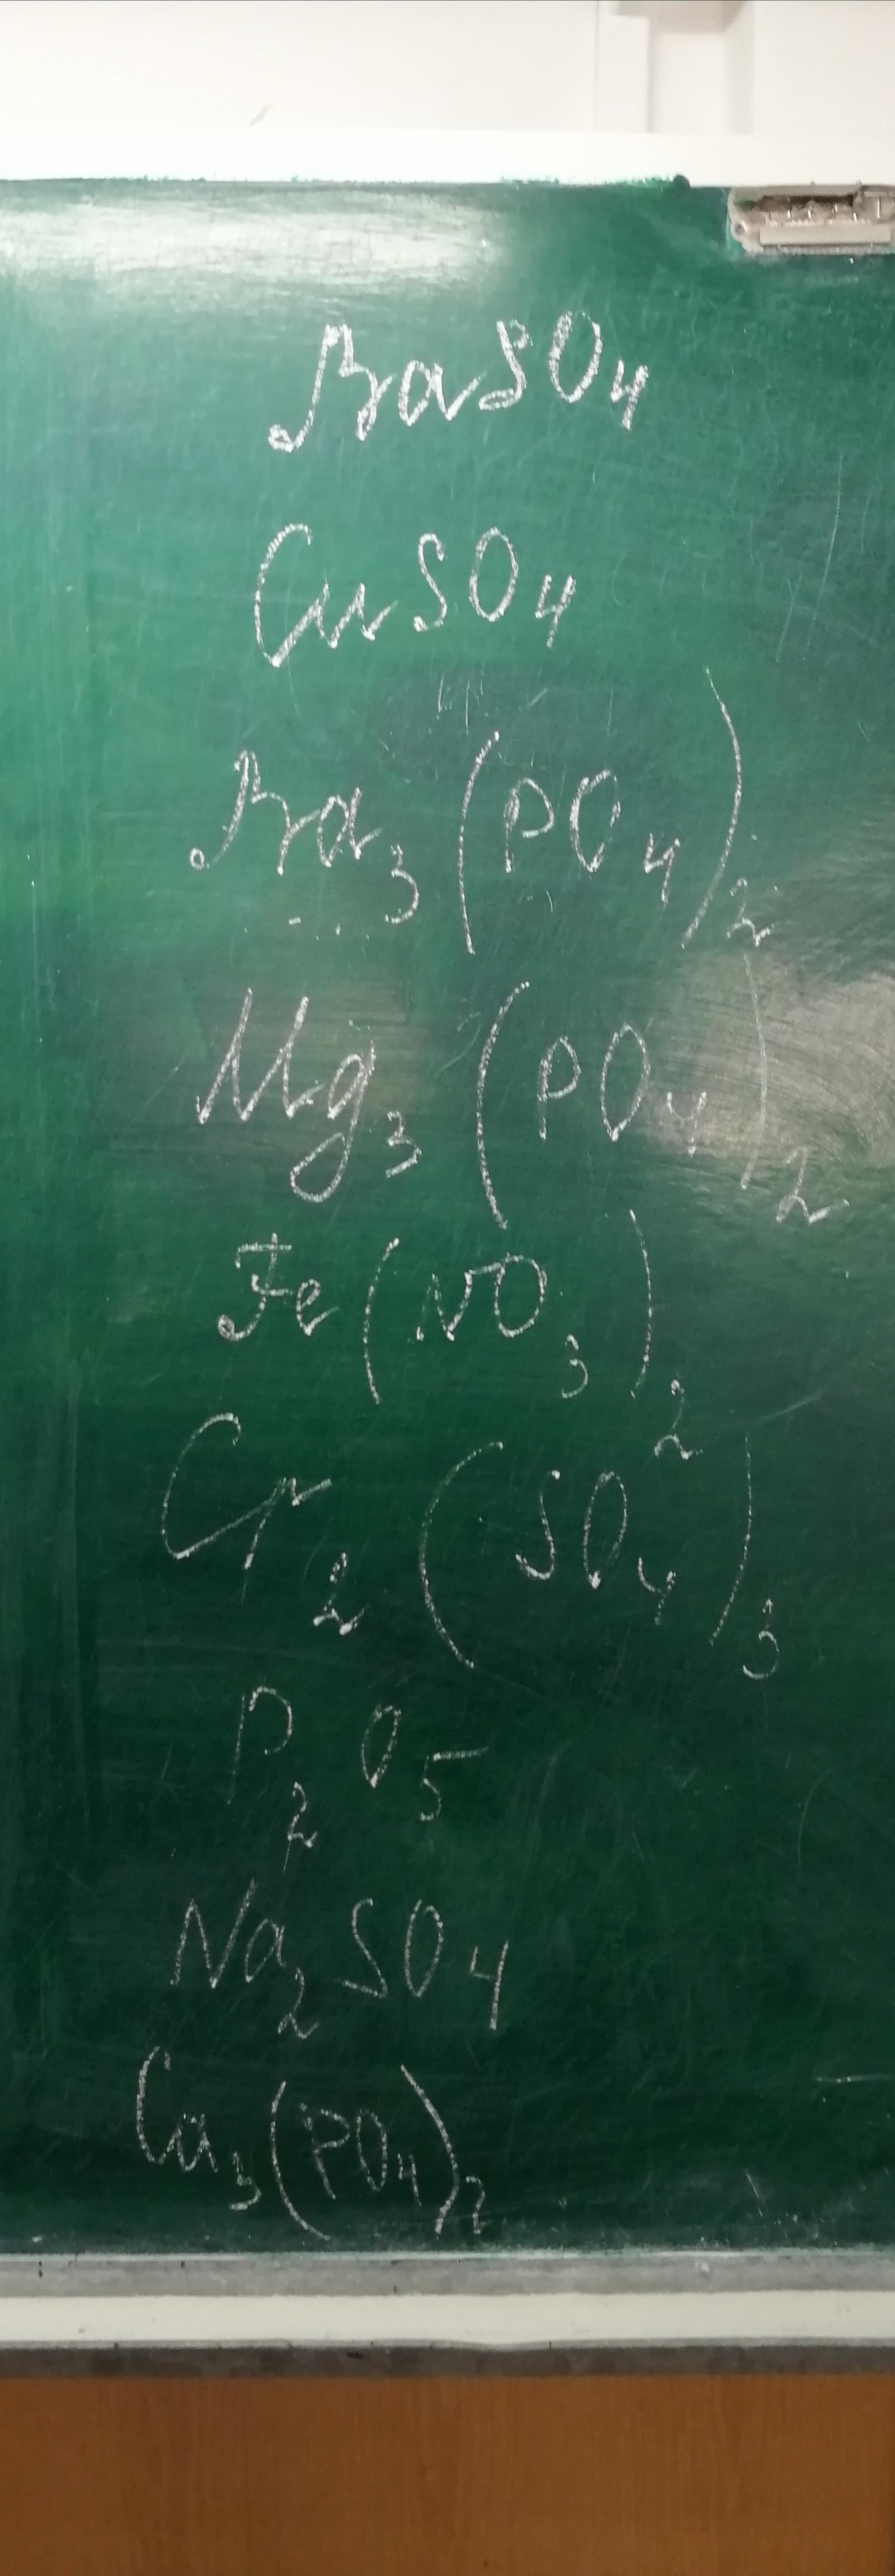 BaSO₄
CuSO₄
Ba₃(PO₄)₂
Mg₃(PO₄)₂
Fe(NO₃)₂
Cr₂(SO₄)₃
P₂O₅
Na₂SO₄
Ca₃(PO₄)₂